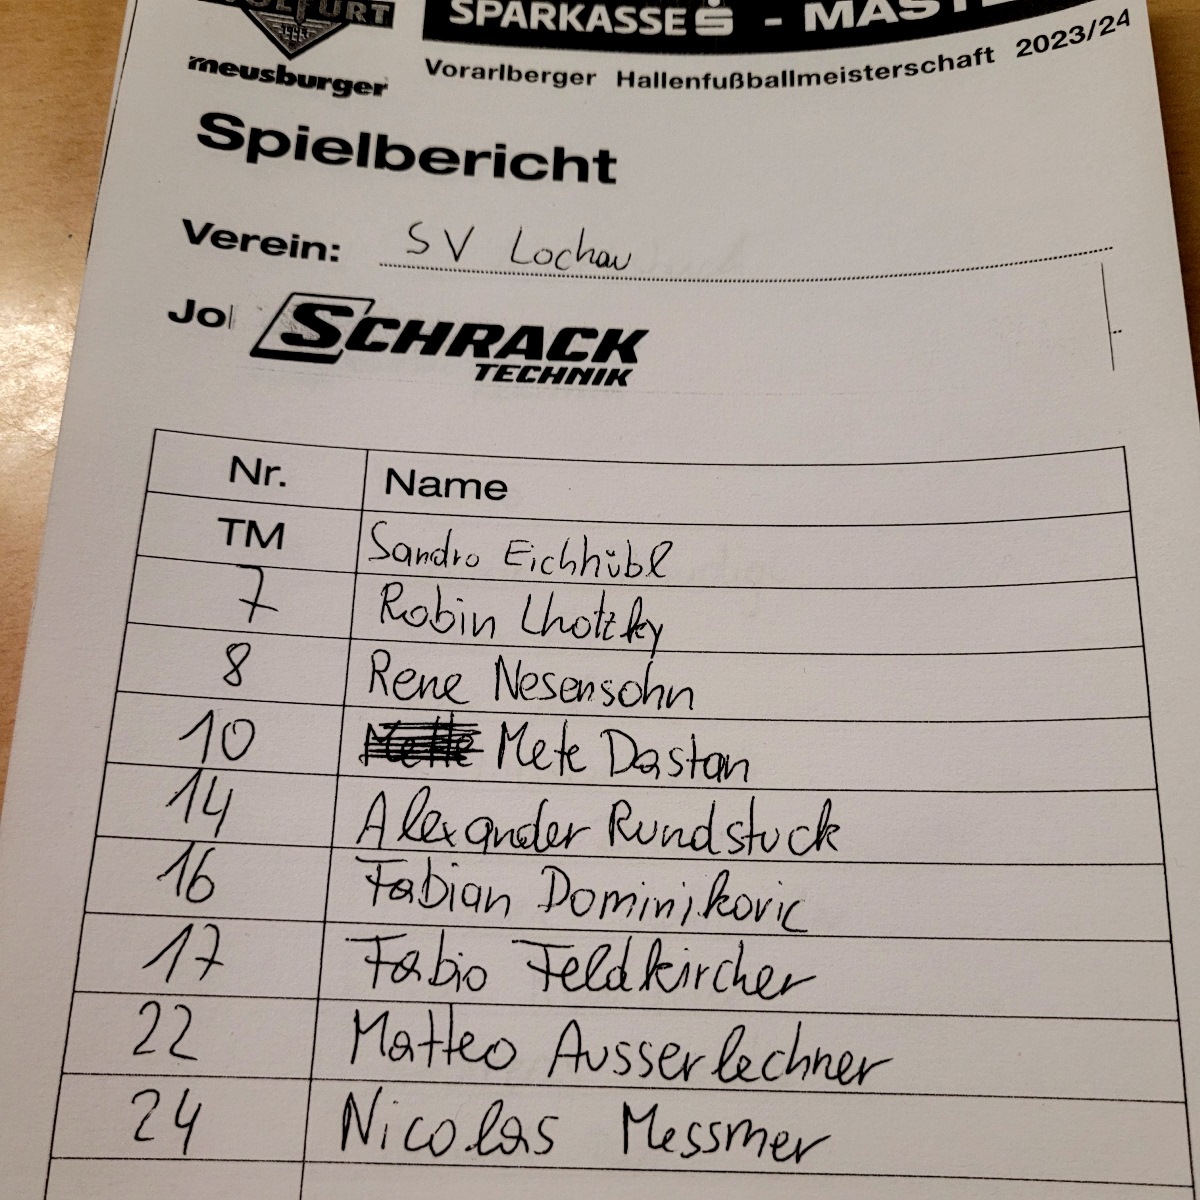 WOLFURT
SPARKASSE S - MAST
meusburger
Vorarlberger Hallenfußballmeisterschaft 2023/24
Spielbericht
Verein: SV Lochau
Jo
SCHRACK
TECHNIK
Nr. Name
TM Sandro Eichhübl
7 Robin Lhotzky
8 Rene Nesensohn
10 Mete Dastan
14 Alexander Rundstuck
16 Fabian Dominikovic
17 Fabio Feldkircher
22 Matteo Ausserlechner
24 Nicolas Messmer